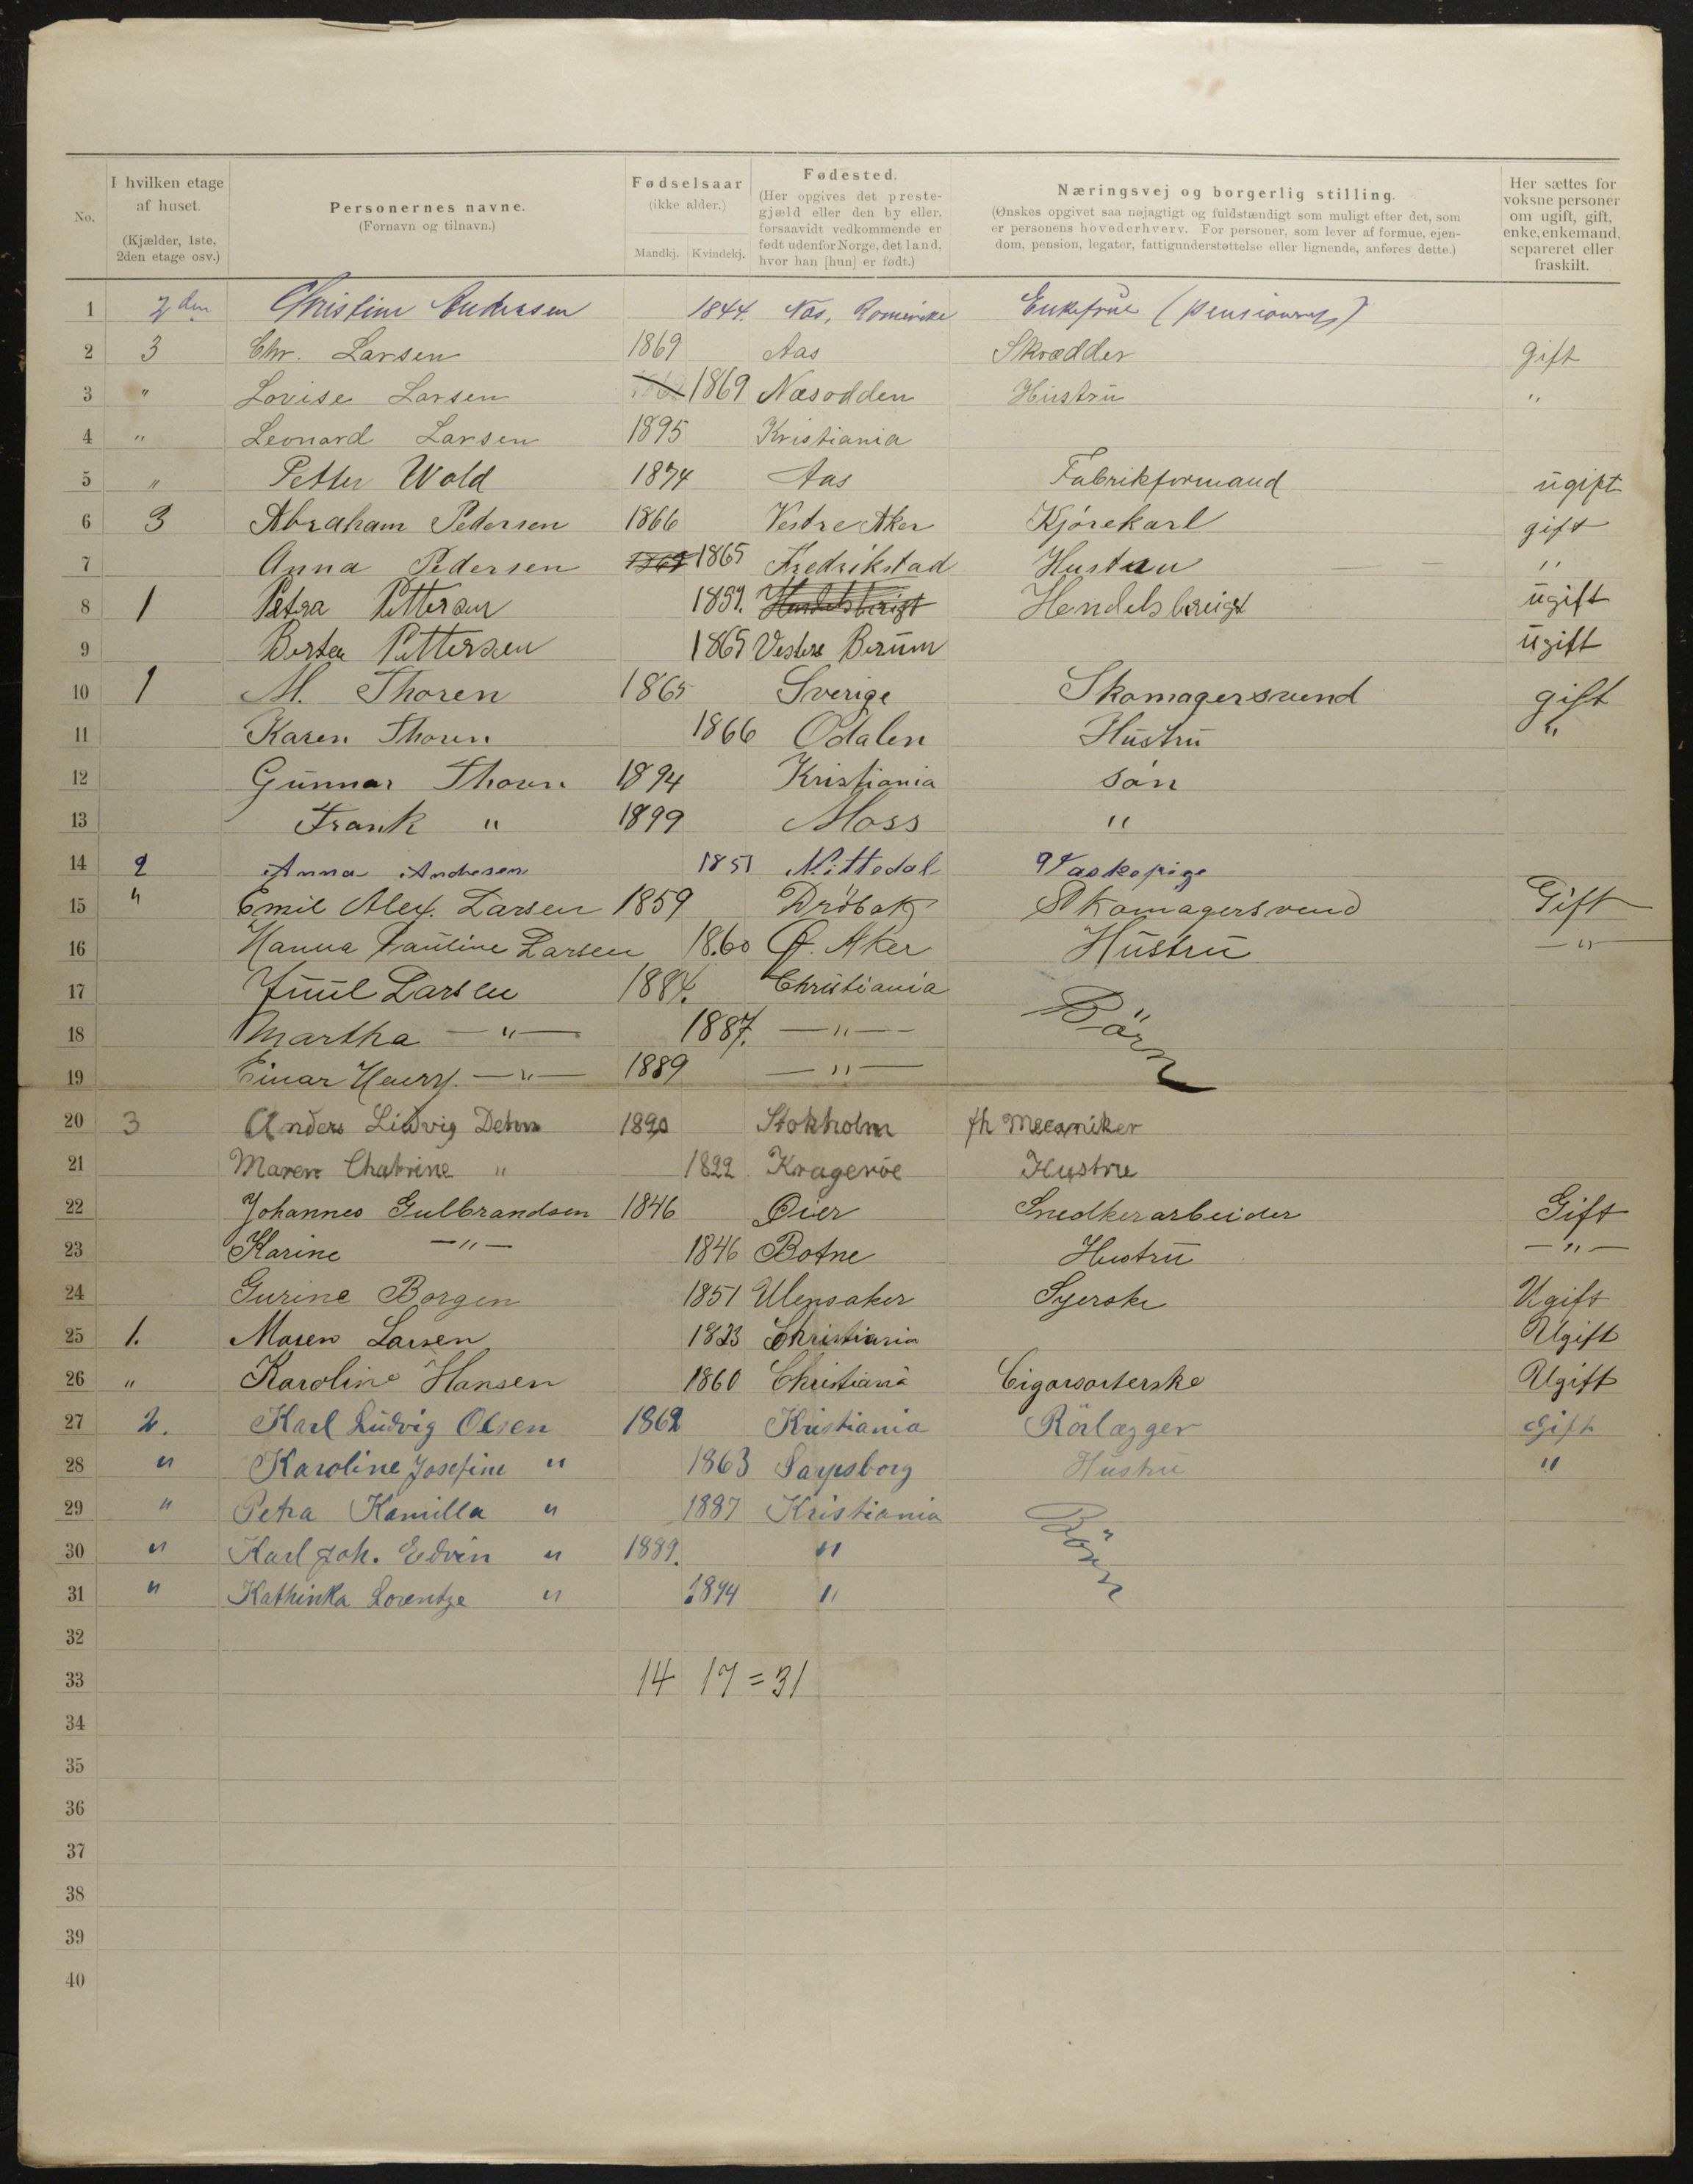 No.
I hvilken etage af huset. (Kjælder, 1ste, 2den etage osv.)
Personernes navne. (Fornavn og tilnavn.)
Fødselsaar (ikke alder.) Mandkj. Kvindekj.
Fødested. (Her opgives det prestegjæld eller den by eller, forsaavidt vedkommende er født udenfor Norge, det land, hvor han [hun] er født.)
Næringsvej og borgerlig stilling. (Ønskes opgivet saa nøjagtigt og fuldstændigt som muligt efter det, som er personens hovederhverv. For personer, som lever af formue, ejendom, pension, legater, fattigunderstøttelse eller lignende, anføres dette.)
Her sættes for voksne personer om ugift, gift, enke, enkemand, separeret eller fraskilt.
1 2den Christine Andersen 1844. Næs, Romerike Enkefrue
2 3 Chr. Larsen 1869 Aas Skrædder gift
3 " Lovise Larsen 1869 Næsodden Hustru "
4 " Leonard Larsen 1895 Kristiania
5 " Petter Wold 1874 Aas Fabrikformand ugift
6 3 Abraham Pedersen 1866 Vestre Aker Kjørekarl gift
7 Anna Pedersen 1865 Fredrikstad Hustru "
8 1 Petra Pettersen 1859. Hendelsbreigt ugift
9 Berta Pettersen 1865 Vestre Berum ugift
10 1 M. Thoren 1865 Sverige Skomagersvend gift
11 Karen Thoren 1866 Odalen Hustru "
12 Gunnar Thoren 1894 Kristiania søn
13 Frank " 1899 Moss "
14 2 Anna Andresen 1851 Nittedal Vaskepige
15 " Emil Alex. Larsen 1859 Drøbak Skomagersvend Gift
16 Hanna Pauline Larsen 1860 Ø. Aker Hustru — " —
17 Juul Larsen 1884. Christiania Børn
18 Martha — " — 1887. — " —
19 Einar Henry. — " — 1889 — " —
20 3 Anders Ludvig Dehn 1820 Stokholm fh Mecaniker
21 Maren Chatrine " 1822 Kragerøe Hustru
22 Johannes Gulbrandsen 1846 Øier Snedkerarbeider Gift
23 Karine — " — 1846 Botne Hustru — " —
24 Gurine Borgen 1851 Ulensaker Syerske Ugift
25 1. Maren Larsen 1823 Christiania Ugift
26 " Karoline Hansen 1860 Christiania Cigarsorterske Ugift
27 2. Karl Ludvig Olsen 1862 Kristiania Rörlægger Gift
28 " Karoline Josefine " 1863 Sarpsborg Hustru "
29 " Petra Kamilla " 1887 Kristiania Börn
30 " Karl Joh. Edvin " 1889. "
31 " Kathinka Lorentze " 1894 "
32
33 14 17 = 31
34
35
36
37
38
39
40